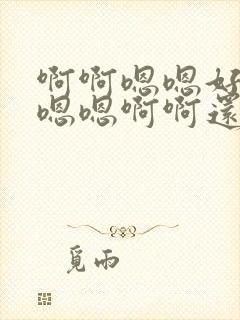 啊啊嗯嗯好
嗯嗯啊啊還
覓雨